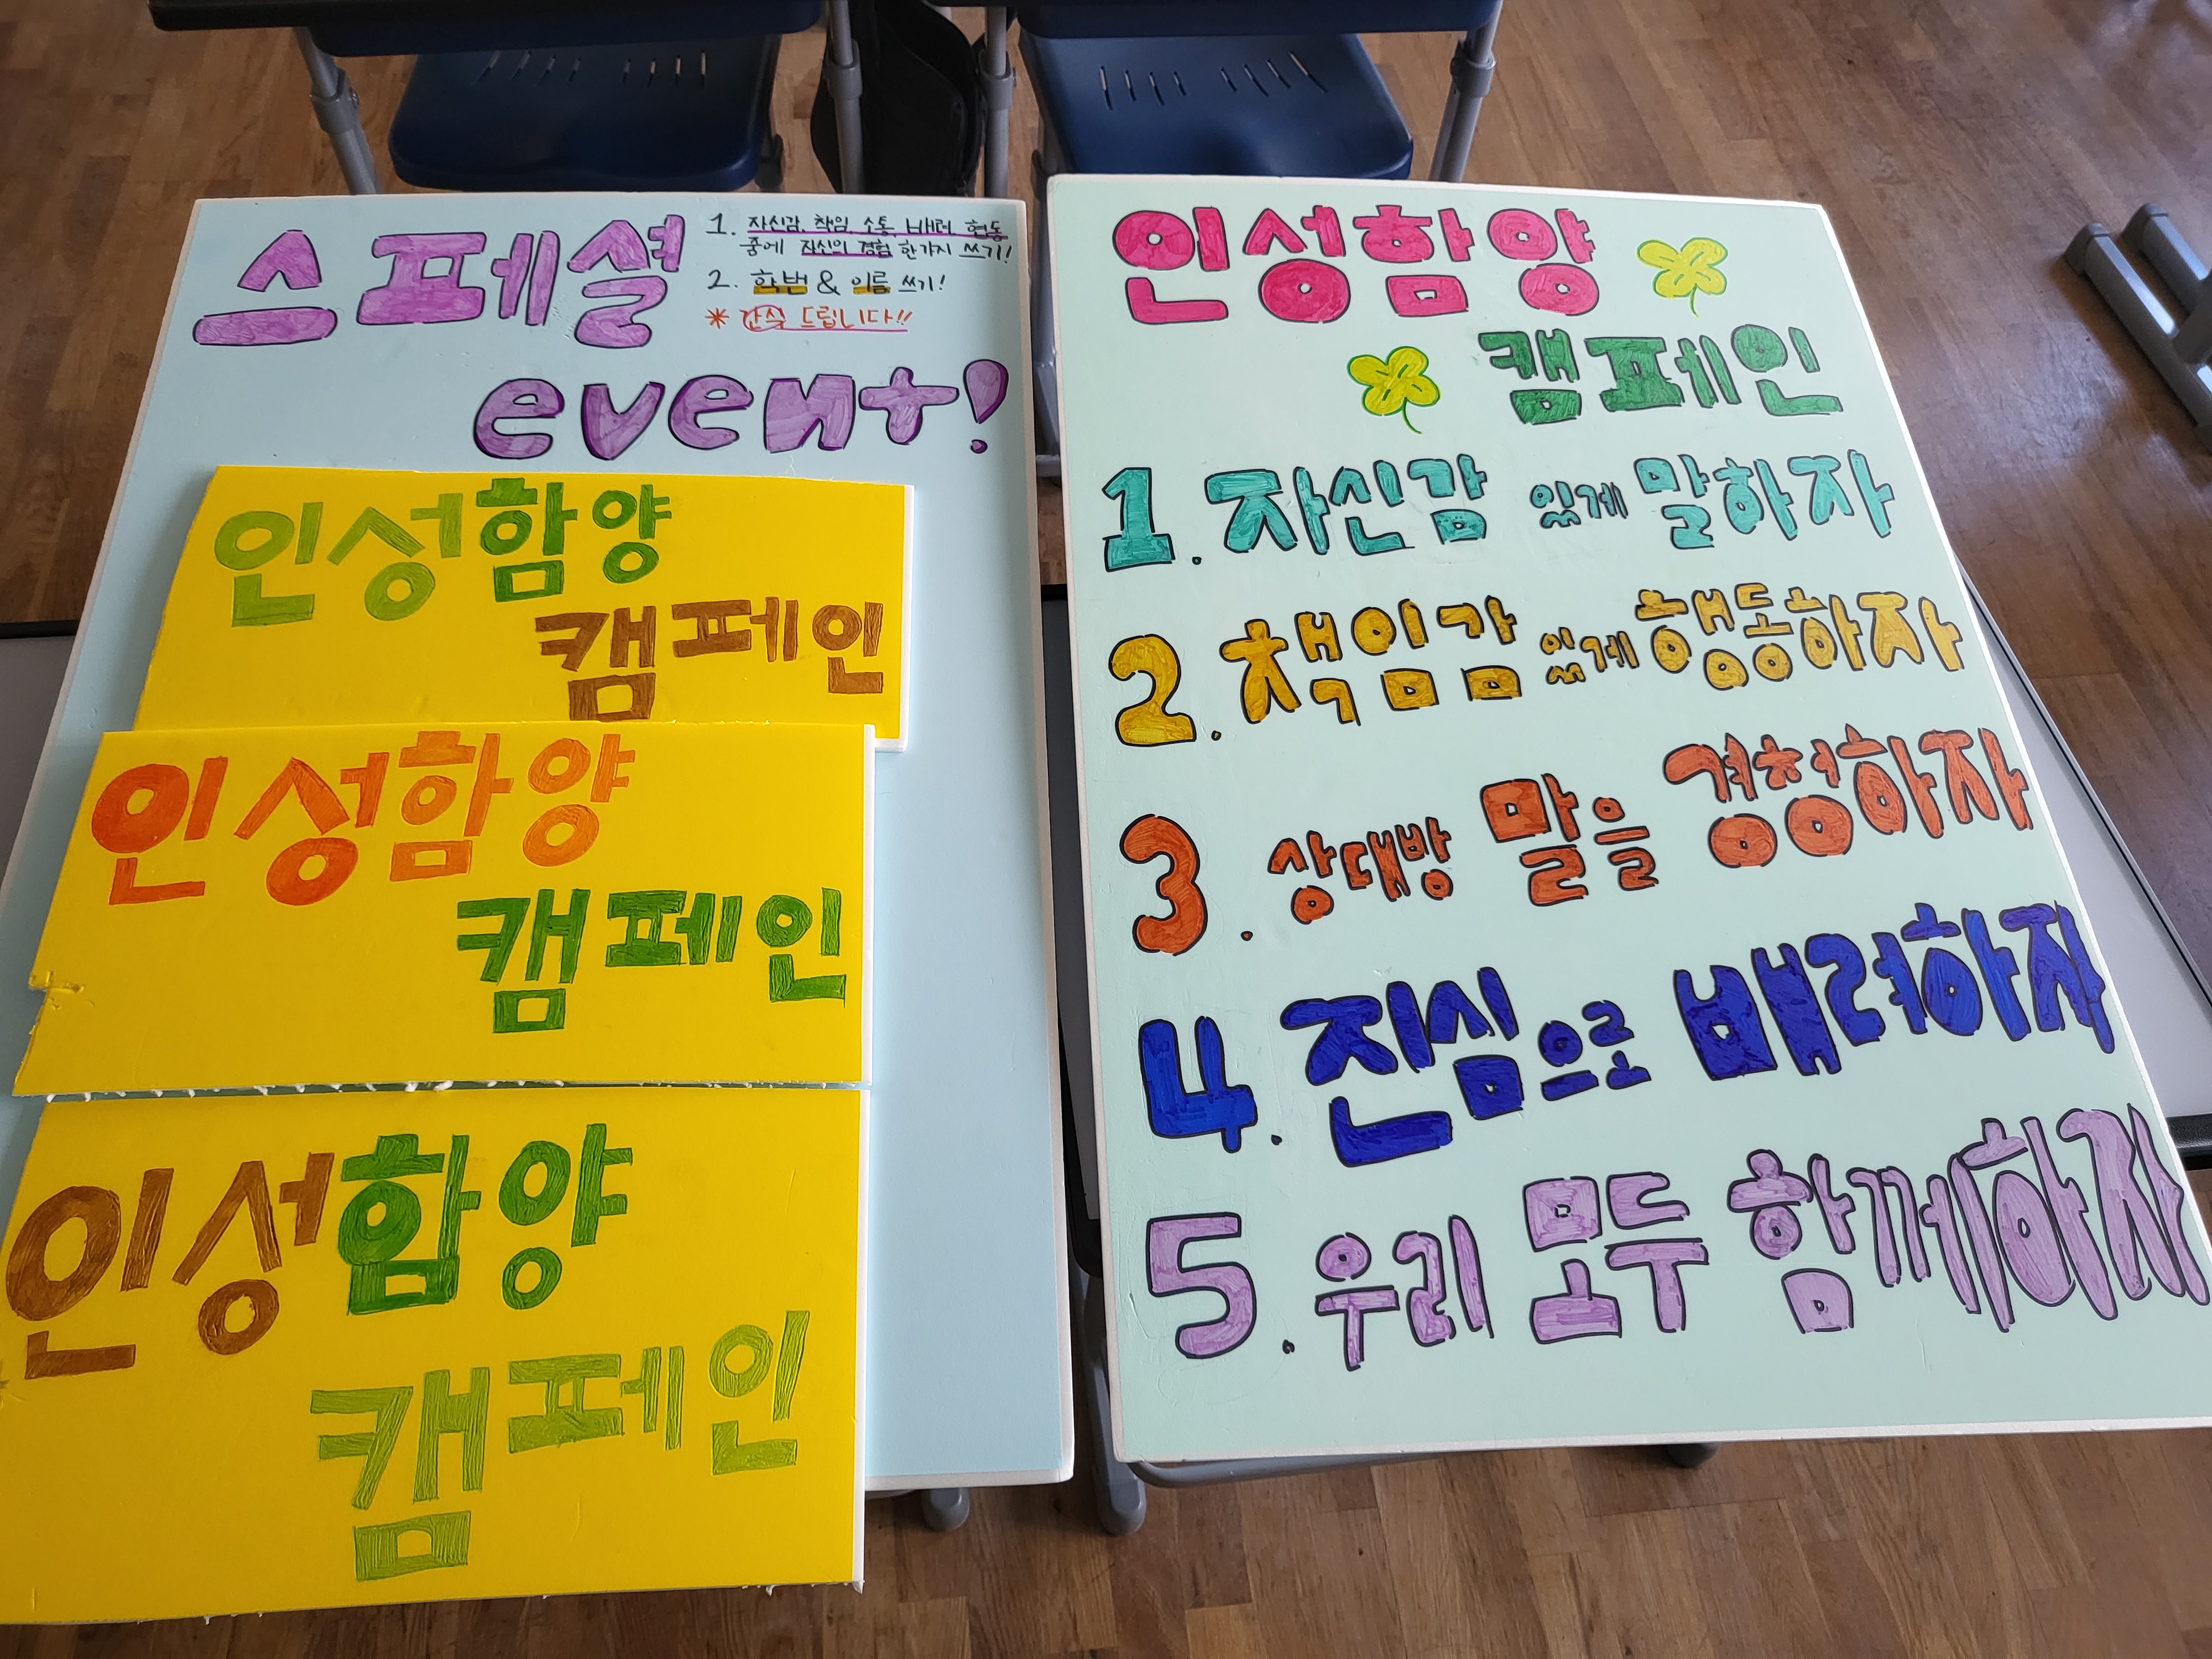 스페셜
event!
1. 자신감, 책임, 소통, 배려, 협동
중에 자신의 경험 한가지 쓰기!
2. 학번 & 이름 쓰기!
* 간식 드립니다!!
인성함양
캠페인
인성함양
캠페인
인성함양
캠페인
인성함양
캠페인
1. 자신감 있게 말하자
2. 책임감 있게 행동하자
3. 상대방 말을 경청하자
4. 진심으로 배려하자
5. 우리 모두 함께하자